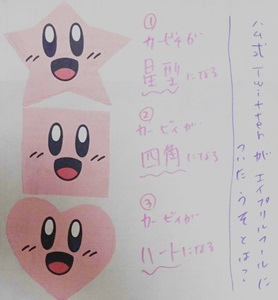 ハム式 Twitter が エイプリルフールに
ついたうそとは?
①
カービィが
星型になる
②
カービィが…
四角になる
③
カービィが
ハートになる